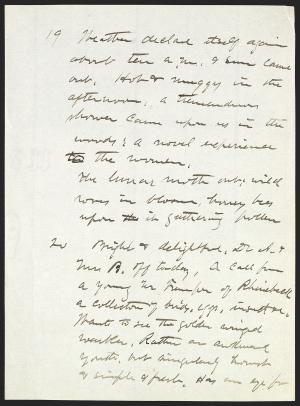 19 Weather declared itself again
about ten a.m. & sun came
out. Hot & muggy in the
afternoon; a tremendous
shower came upon us in the
woods; a novel experience
to the women.
The lunar moth out; wild
roses in bloom, honey bees
upon it gathering pollen
20 Bright & delightful, Dr A. &
Mrs B. off today, A call from
a young Mr of Rhinebeck
a collector of birds, eggs, insects &c.
Wants to see the golden winged
warbler. Rather an awkward
youth, but singularly honest
& simple & fresh. Has an eye for